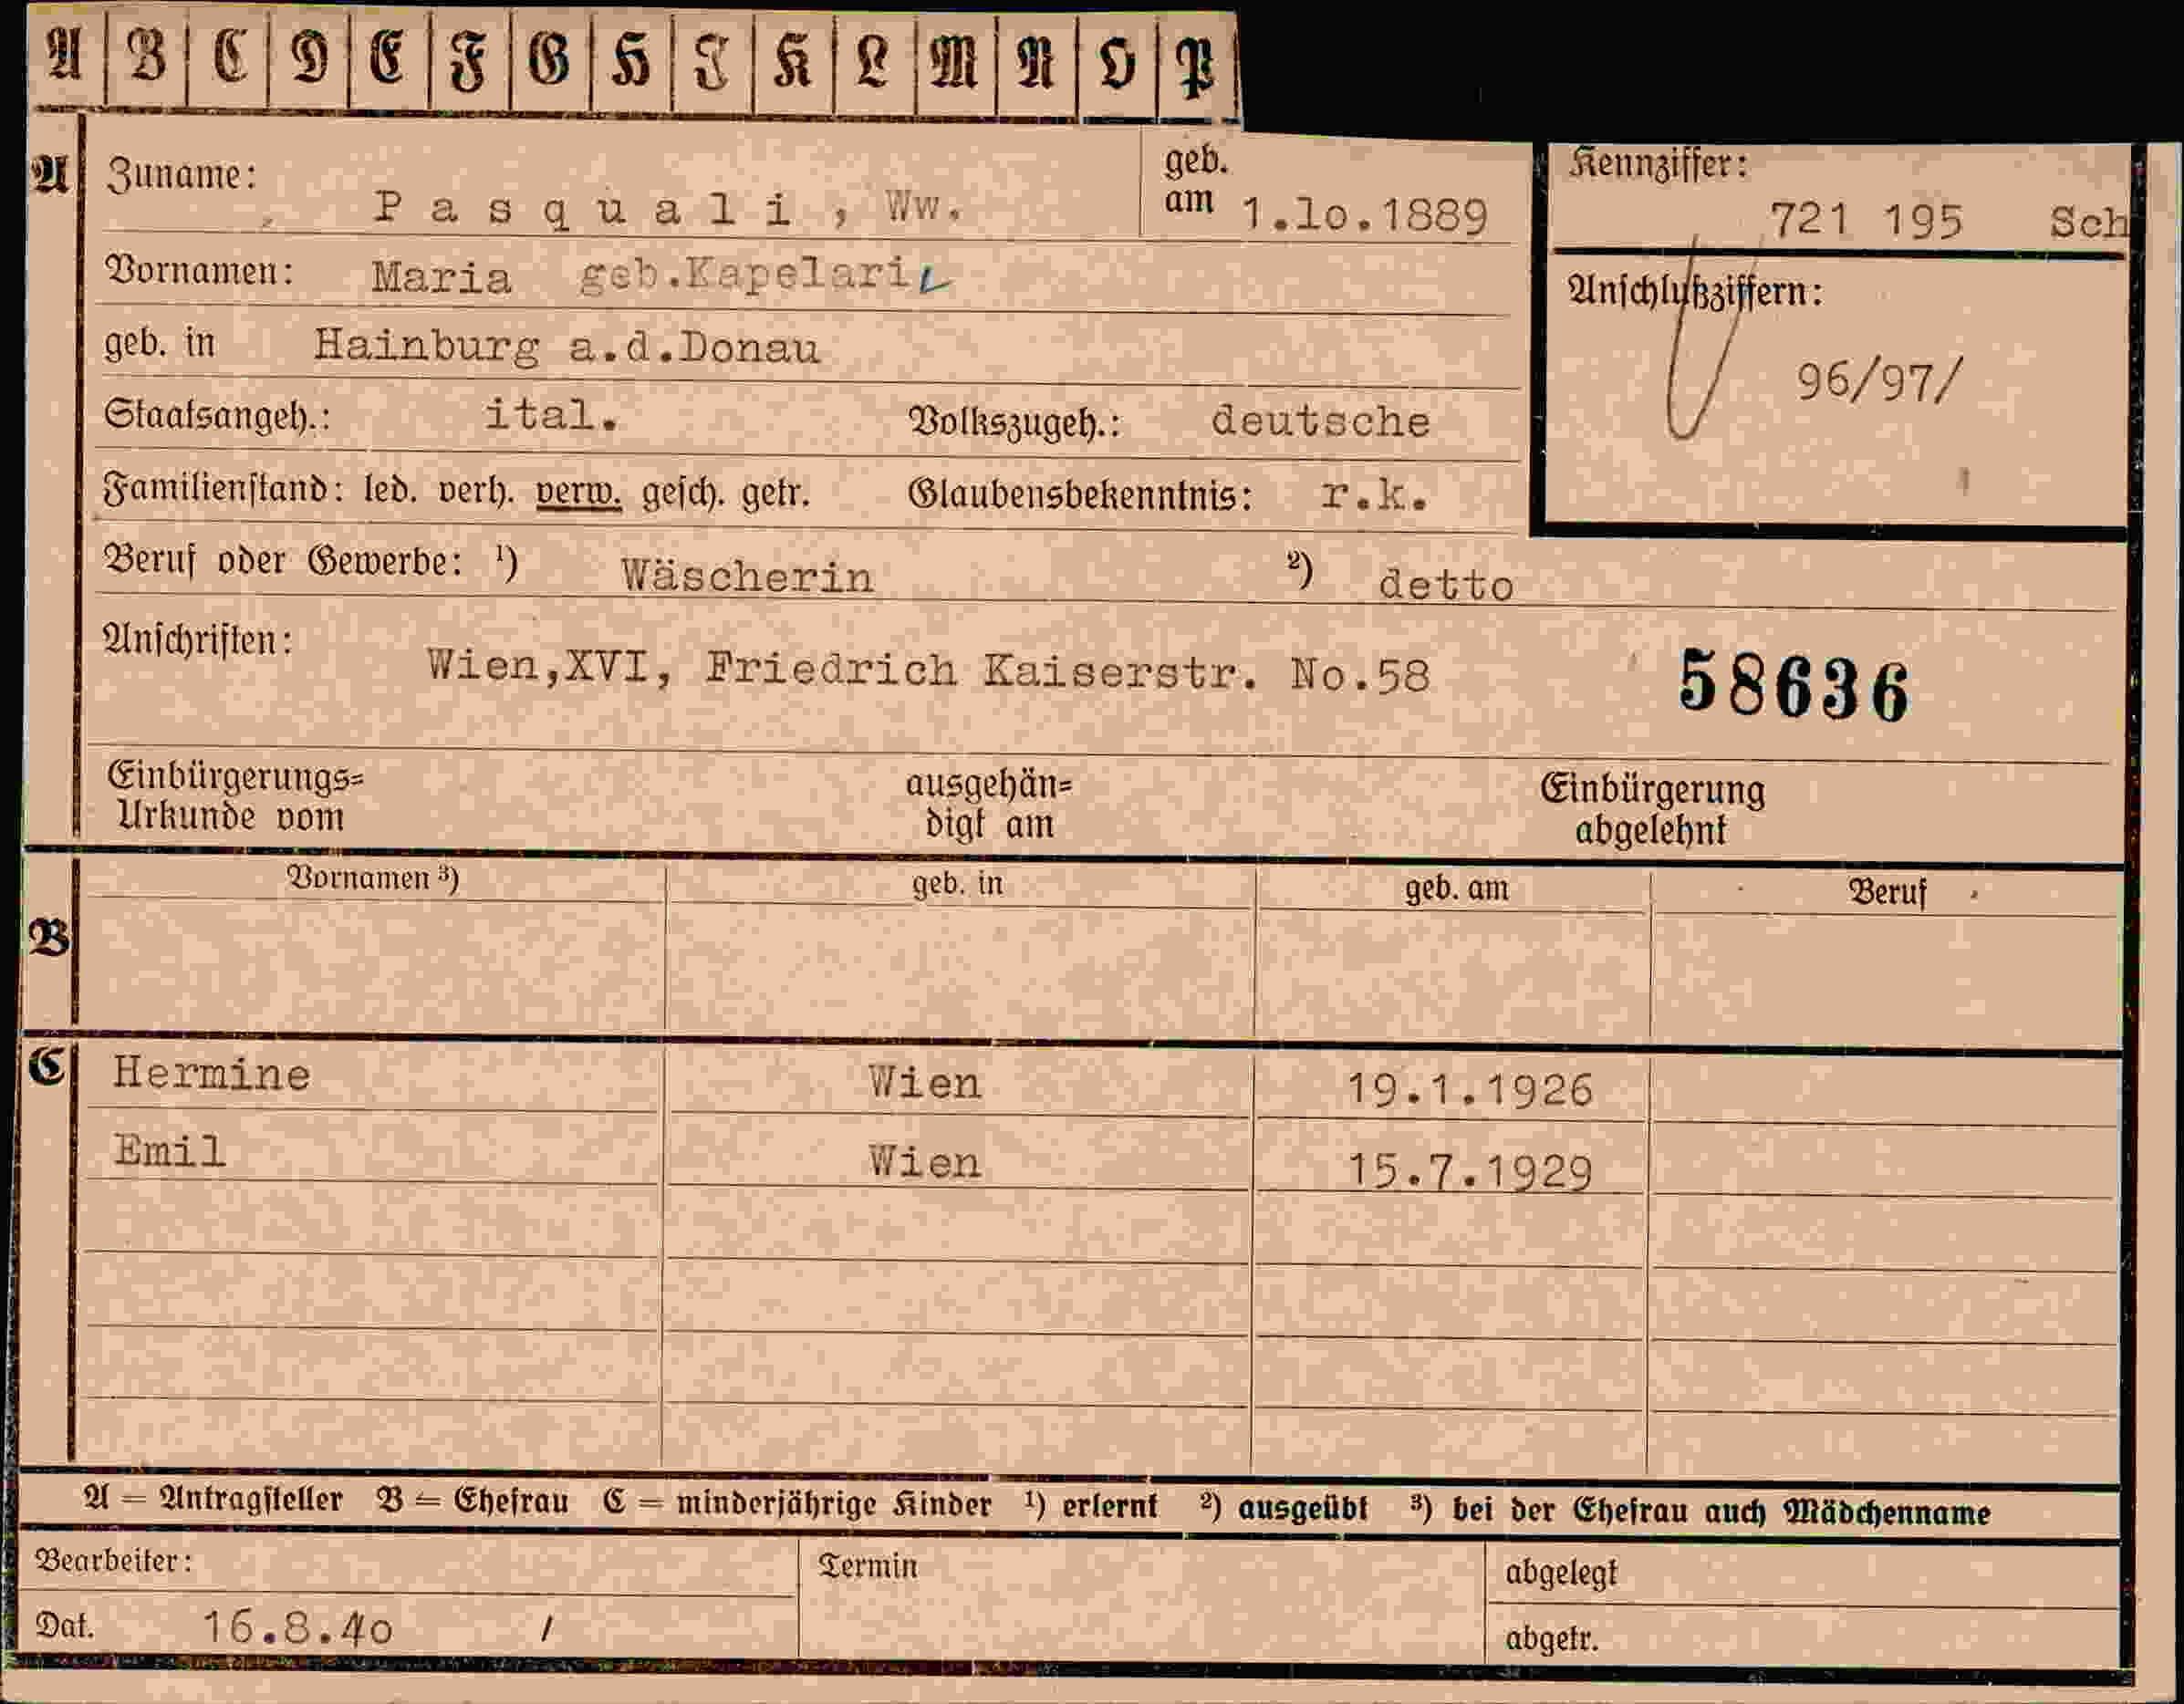 A B C D E F G H I K L M N O P
A Zuname: Pasquali, Ww. geb. am 1.1o.1889
Kennziffer: 721 195 Sch
Vornamen: Maria geb.Kapelari
Anschlußziffern:
96/97/
geb. in Hainburg a.d.Donau
Staatsangeh.: ital. Volkszugeh.: deutsche
Familienstand: led. verh. verw. gesch. getr. Glaubensbekenntnis: r.k.
Beruf oder Gewerbe: ¹) Wäscherin ²) detto
Anschriften: Wien,XVI, Friedrich Kaiserstr. No.58
58636
Einbürgerungs= ausgehän= Einbürgerung
Urkunde vom digt am abgelehnt
Vornamen ³) geb. in geb. am Beruf
B
C Hermine Wien 19.1.1926
Emil Wien 15.7.1929
A = Antragsteller B = Ehefrau C = minderjährige Kinder ¹) erlernt ²) ausgeübt ³) bei der Ehefrau auch Mädchenname
Bearbeiter: Termin abgelegt
Dat. 16.8.4o / abgetr.